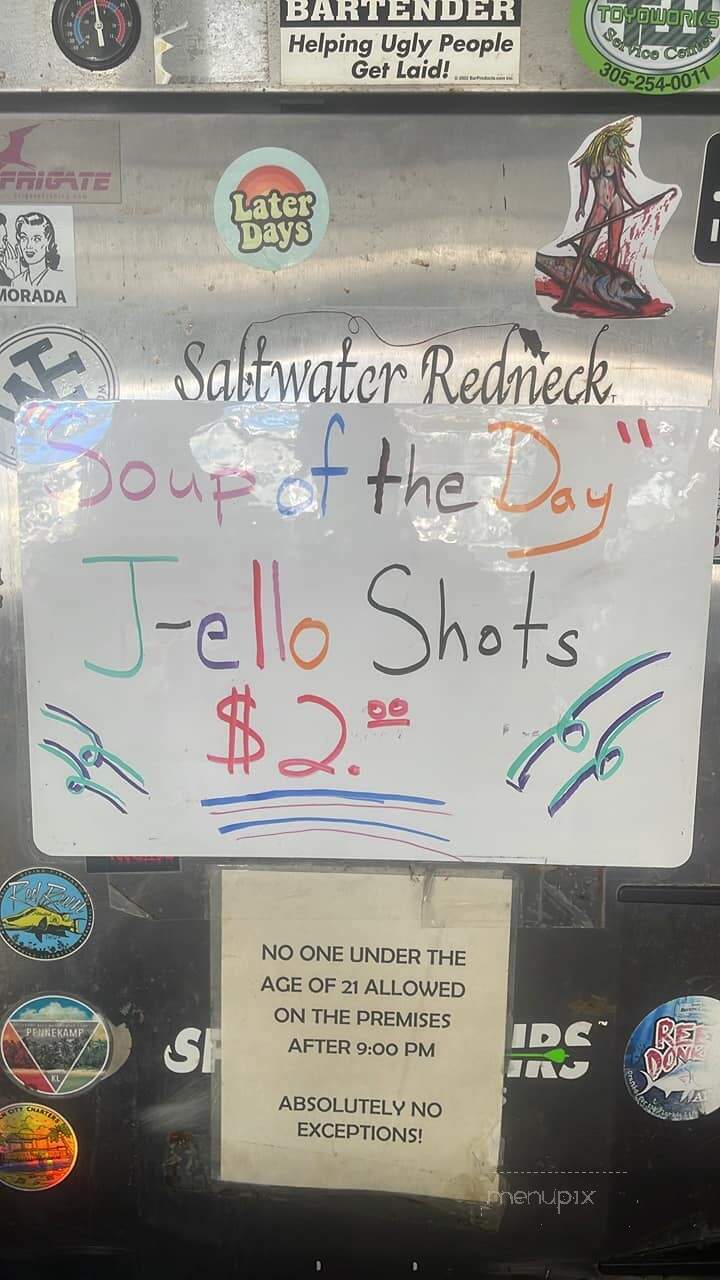 BARTENDER
Helping Ugly People
Get Laid!
TOYOWORKS
Service Center
305-254-0011
FRIGATE
Later
Days
MORADA
Saltwater Redneck
"Soup of the Day"
J-ello Shots
$2.00
NO ONE UNDER THE
AGE OF 21 ALLOWED
ON THE PREMISES
AFTER 9:00 PM
ABSOLUTELY NO
EXCEPTIONS!
PENNEKAMP
CITY CHARTERS
menupix